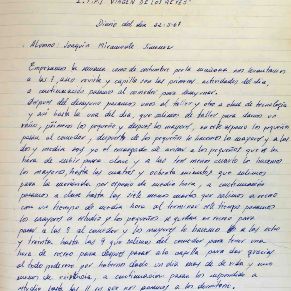 "VIRGEN DE LOS REYES"
Diario del día
Alumno: Joaquín
Empezamos la semana como de costumbre por la mañana nos levantamos
a las 7, aseo revista y capilla son las primeras actividades del día,
a continuación pasamos al comedor para desayunar.
Después del desayuno pasamos unos al taller y otros a clase de tecnología
y así hasta la una del día, que salimos de taller para darnos un
primero los pequeños y después los mayores, los pequeños
pasan al comedor, después de los pequeños lo hacemos los mayores y a las
dos y media soy yo el encargado de avisar a los pequeños que es la
hora de subir para clase y a las tres menos cuarto lo hacemos
los mayores, hasta las cuatro y minutos que salimos
para la merienda, por espacio de media hora, a continuación
pasamos a clase hasta las siete menos cuarto que salimos a recreo
con un tiempo de media hora. Al terminar el tiempo pasamos
los mayores a estudio y los pequeños se quedan en recreo para
pasar a las 8 al comedor y los mayores lo hacemos a las ocho
y treinta hasta las 9 que salimos del comedor para tener una
hora de recreo para después pasar a la capilla para dar gracias
al todo poderoso por habernos dado un día más de vida y unos
a continuación pasan los
estudio hasta las 11 en que nos vamos a los dormitorios,